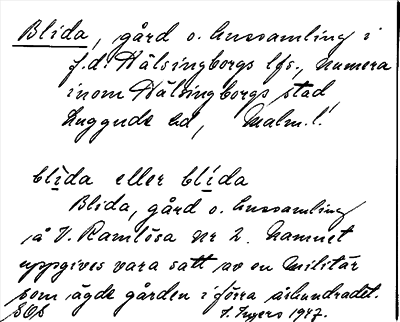 Blida, gård o. hussamling i
f.d. Hälsingborgs lfs., numera
inom Hälsingborgs stad
Luggude hd, Malm.l.
blìda eller blída
Blida, gård o. hussamling
å V. Ramlösa nr 2. Namnet
uppgives vara satt av en militär
som ägde gården i förra århundradet.
SOS I. Ingers 1947.